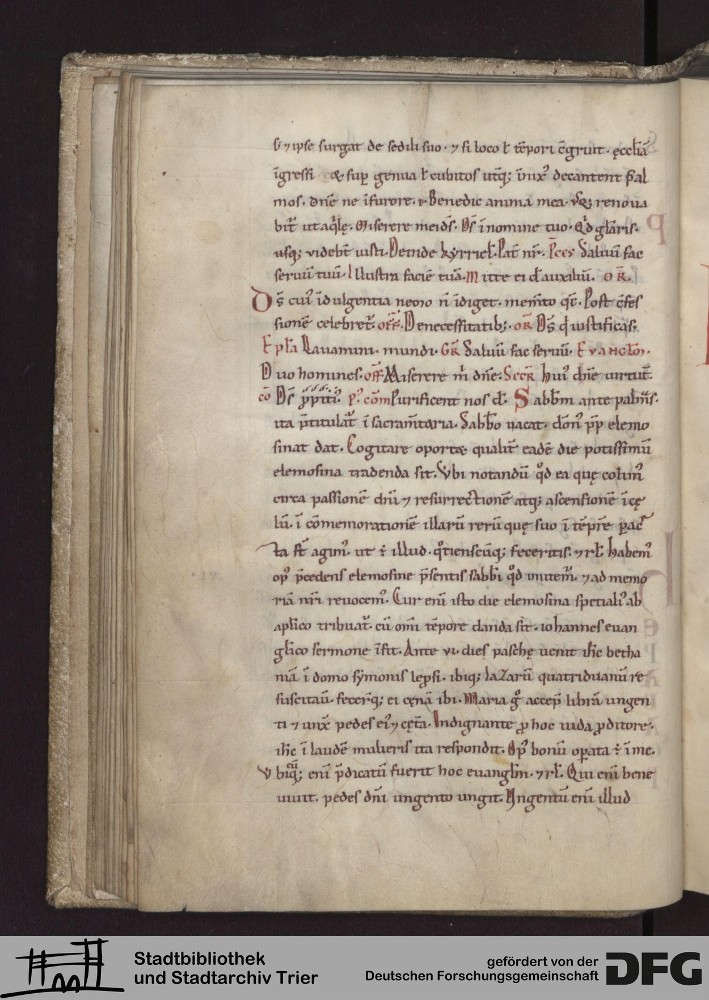 s̄ ⁊ ipse surgat de sedili suo · ⁊ si loco ł tēpori c̄gruit · ęccl̄iā
īgressi & sup genua ł cubitos utq; īnixꝰ decantent psal
mos. dn̄e ne ī furore. Benedic anima mea. Vsq; renoua
bit̄ ut aq̄lę. Miserere mei dś. Dś ī nomine tuo. Qd̄ gl̄aris.
usq; videbt̄ iusti. Deinde kyrriel̄. Pat̄ nr̄. Pces Saluū fac
seruū tuū. Illustra faciē tuā. Mitte ei d̄ auxiliū. OR̄.
Dś cuiꝰ īdulgentia nemo n̄ īdiget. mem̄to qś. Post c̄fes
sionē celebret̄. off̄. De necessitatib;. OR̄ Dś q̄ iustificas.
Epl̄a Lauamini. mundi. GR̄ Saluū fac seruū. Evangl̄m.
Duo homines. off̄ Miserere m̄ dn̄e. Secr̄ huiꝰ dn̄e uirtut̄.
cō Dś p̄pitiꝰ. P̄ cōm Purificent nos d̄. Sabbm̄ ante palm̄s.
ita p̄titulat̄ ī sacram̄taria. Sabb̄o uacat. don̄ pp̄ elemo
sinat dat. Cogitare oportet qualit̄ eadē die potissimū
elemosina tradenda sit. Vbi notandū qđ ea quę colim̄
circa passionē dn̄i ⁊ resurrectionē atq; ascensionē ī cę
lū. ī cōmemorationē illarū rerū quę suo ī tēpr̄e pac
ta st̄ agim̄. ut ÷ illud. qtienscūq; feceritis. ⁊ rł. habem̄
opꝰ p̄cedens elemosine p̄sentis sabbi qđ imitem̄. ⁊ ad memo
riā nr̄i reuocem̄. Cur eni isto die elemosina spetialiꝰ ab
aplico tribuat̄. cū om̄i tēpore danda sit. iohannes euan
gl̄ico sermone īfit. Ante vi. dies paschę uenit ih̄c betha
niā ī domo symonis lep̄si. ibiq; lazarū quatriduanū re
suscitau. fecerq; ei cęnā ibi. Maria g̊ accep̄ librā ungen
ti ⁊ unx̄ pedes eiꝰ ⁊ cęt̄a. Indignante p̄ hoc iuda p̄ditore.
ih̄c ī laudē mulieris ita respondit. Opꝰ bonū opata ÷ ī me.
Vbiq; eni p̄dicatū fuerit hoc euangl̄m. ⁊ rł. Qui eni bene
uiuit. pedes dn̄i ungento ungit. Vngentū eni illud
Stadtbibliothek
und Stadtarchiv Trier
gefördert von der
Deutschen Forschungsgemeinschaft
DFG